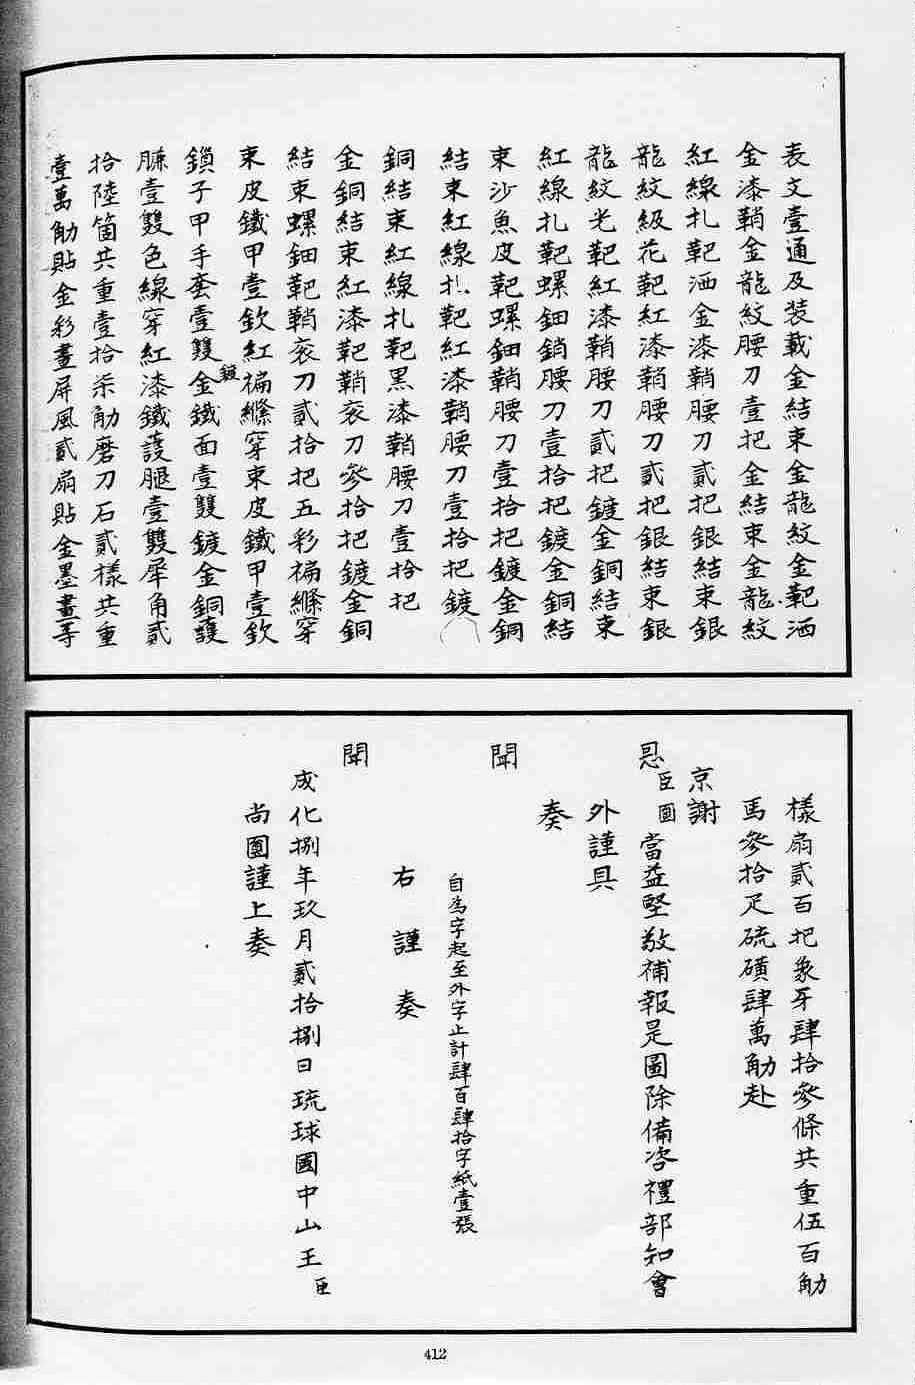 表文壹通及装載金結束金龍紋金靶洒
金漆鞘金龍紋腰刀壹把金結束金龍紋
紅線扎靶洒金漆鞘腰刀貳把銀結束銀
龍紋級花靶紅漆鞘腰刀貳把銀結束銀
龍紋光靶紅漆鞘腰刀貳把鍍金銅結束
紅線扎靶螺鈿鞘腰刀壹拾把鍍金銅結
束沙魚皮靶螺鈿鞘腰刀壹拾把鍍金銅
結束紅線扎靶紅漆鞘腰刀壹拾把鍍
銅結束紅線扎靶黑漆鞘腰刀壹拾把
金銅結束紅漆靶鞘衮刀參拾把鍍金銅
結束螺鈿靶鞘衮刀貳拾把五彩褊縧穿
束皮鐵甲壹欽紅褊縧穿束皮鐵甲壹欽
鎖子甲手套壹雙鍍金鐵面壹雙鍍金銅護
臁壹雙色線穿紅漆鐵護腿壹雙犀角貳
拾陸箇共重壹拾柒觔磨刀石貳樣共重
壹萬觔貼金彩畫屏風貳扇貼金墨畫等
樣扇貳百把象牙肆拾參條共重伍百觔
馬參拾疋硫磺肆萬觔赴
京謝
恩臣圓當益堅敬補報是圖除備咨禮部知會
外謹具
奏
聞
自為字起至外字止計肆百肆拾字紙壹張
右謹奏
聞
成化捌年玖月貳拾捌日琉球國中山王臣
尚圓謹上奏
412